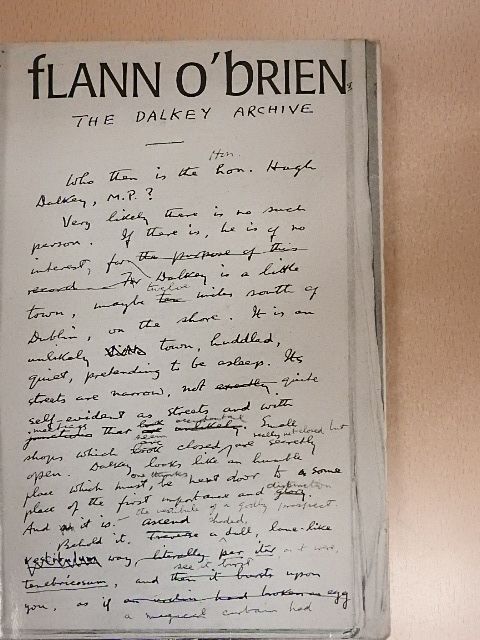 fLANN O'bRIEN
THE DALKEY ARCHIVE
Hon.
Who then is the hon. Hugh
Dalkey, M.P.?
Very likely there is no such
person. If there is, he is of no
interest, for the purpose of this
record. For Dalkey is a little
twelve
town, maybe ten miles south of
Dublin, on the shore. It is an
unlikely town, huddled,
quiet, pretending to be asleep. Its
streets are narrow, not exactly quite
self-evident as streets and with
meetings accidental
junctions that look unlikely. Small
seem really not closed but
shops which look closed are secretly
open. Dalkey looks like an humble
one thinks
place which must, be next door to a some
distinction
place of the first importance and glory.
the vestibule of a godly prospect
And so it is. ascend
Behold it. Traverse a dull, lane-like
vestibulum way, literally per iter as it were,
see it, burst
tenebricosum, and then it bursts upon
you, as if an broken an egg
a magical curtain had